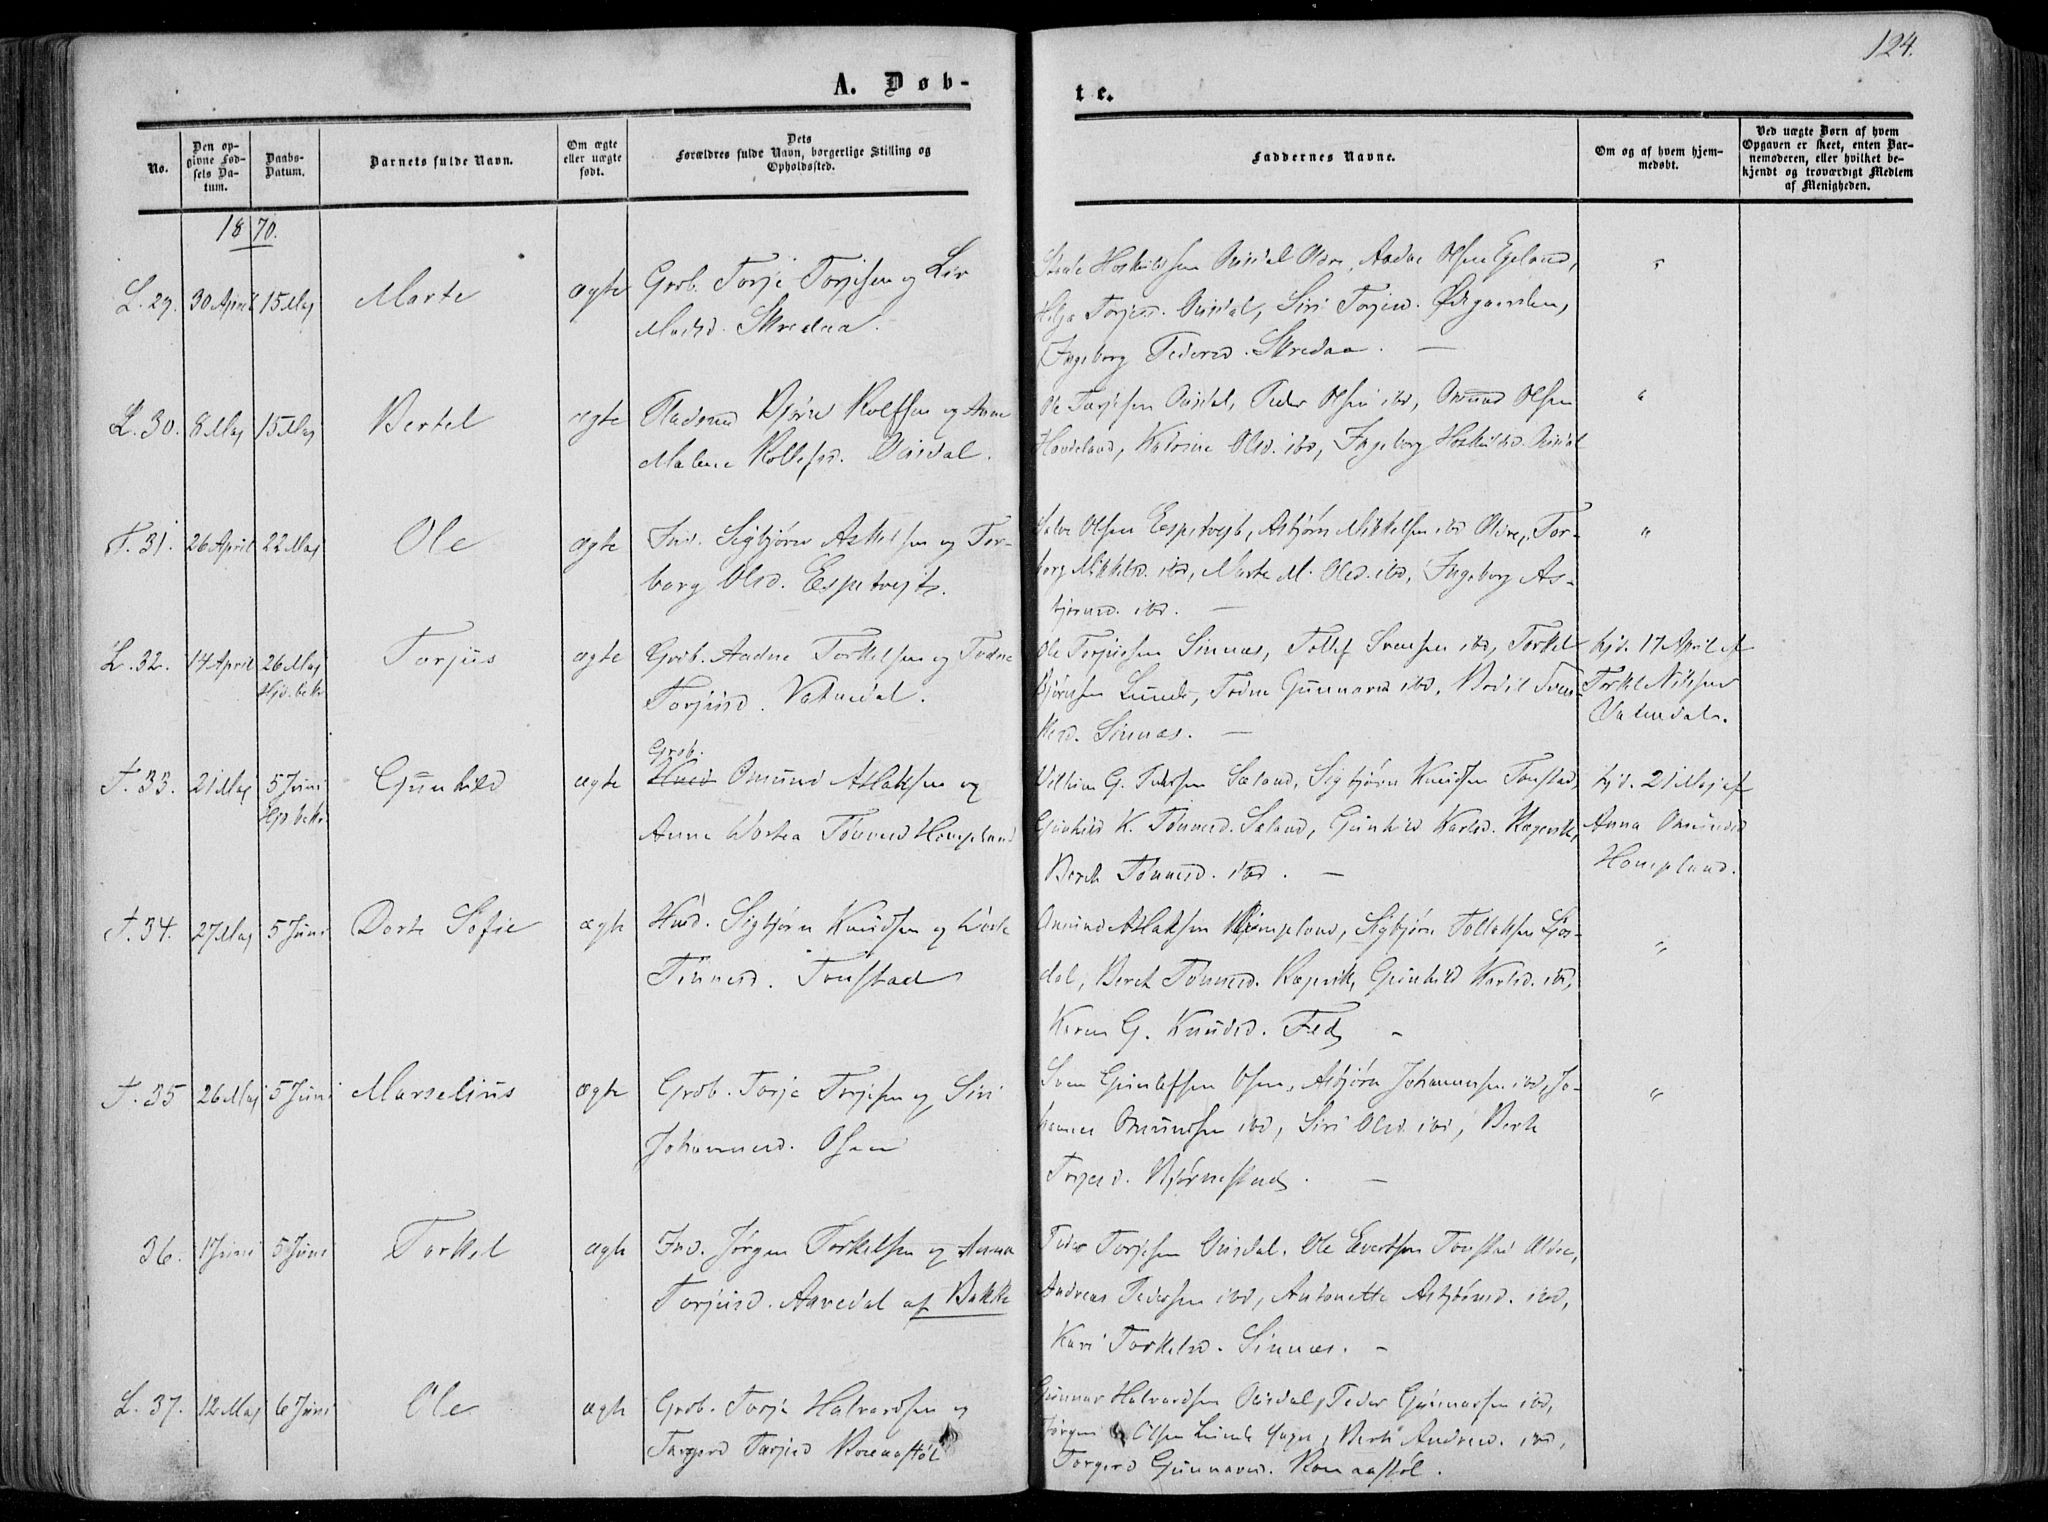 124.
A. Døb-
te.
No.
Den op-
givne Fød-
sels Da-
tum.
Daabs-
Datum.
Barnets fulde Navn.
Om ægte
eller uægte
født.
Dets
Forældres fulde Navn, borgerlige Stilling og
Opholdssted.
Faddernes Navne.
Om og af hvem hjem-
medøbt.
Ved uægte Børn af hvem
Opgaven er skeet, enten Bar-
nemoderen, eller hvilket be-
kjendt og troværdigt Medlem
af Menigheden.
1870.
L. 29. 30 April 15 Maj Marte ægte Grdb. Torje Torjesen og Liv
Madsd. Skredaa.
Hoskildsen Ousdal Oldre, Aadne Olsen Egeland,
Helga Torjesd. Ousdal, Siri Torjesd. Ødegaarden,
Ingeborg Pedersd. Skredaa. —
L. 30. 8 Maj 15 Maj Bertel ægte Pladsmd Bjørn Rolfsen og Anne
Malene Rollefsd. Ousdal.
Ole Torjesen Ousdal, Peder Olsen ibd, Omund Olsen
Haudeland, Katrine Olsd. ibd, Ingeborg Hoskilsd. Ousdal
"
T. 31. 26 April 22 Maj Ole ægte Ind. Sigbjørn Askelsen og Tor-
borg Olsd. Espetvejt.
Salve Olsen Espetvejt, Asbjørn Mikkelsen ibd Oldre, Tor-
borg Mikkelsd. ibd, Marte M. Olsd. ibd, Ingeborg As-
bjørnsd. ibd. —
"
L. 32. 14 April 26 Maj Torjus ægte Grdb. Aadne Torkelsen og Todne
Hjd. bekr.
Torjusd. Vatnedal.
Ole Torjussen Sinnæs, Tollef Svensen ibd, Torkel
Bjørnsen Lunde, Todne Gunnarsd ibd, Bodil Tven-
kesd. Sinnæs. —
hjd. 17 April af
Torkel Nilssen
Vatnedal.
T. 33. 21 Maj 5 Juni Gunhild ægte
Hjd bekr.
Grdb.
Omund Atlaksen og
Anne Tønnesd Hompland
Villum G. Pedersen Sæland, Sigbjørn Knudsen Tonstad,
Gunhild K. Tønnesd. Sæland, Gunhild Karlsd. Rægevik,
Beret Tønnesd. ibd. —
hjd. 21 Maj af
Anna Omundsd
Hompland.
T. 34. 27 Maj 5 Juni Dorte Sofie ægte Husd. Sigbjørn Knudsen og
Tønnesd. Tonstad
Omund Atlaksen Hompland, Sigbjørn Tollaksen Jos-
dal, Beret Tønnesd. Rægevik, Gunhild Karlsd. ibd,
Karen G. Knudsd. Feda —
"
T. 35 26 Maj 5 Juni Marselius ægte Grdb. Torje Torjesen og Siri
Johannesd. Osen
Sven Gunlefsen Osen, Asbjørn Johannesen ibd, Jo-
hannes Omundsen ibd, Siri Olsd. ibd, Berte
Torjesd. Bjørnestad. —
"
36. 1 Juni 5 Juni Torkel ægte Ind. Jørgen Torkelsen og Anna
Torjusd. Aavedal af Bakke
Peder Torjesen Ousdal, Ole Evertsen Tonstad Oldre,
Andreas Pedersen ibd, Antonette Asbjørnsd. ibd,
Kari Torkelsd. Sinnæs. —
L. 37. 12 Maj 6 Juni Ole ægte Grdb. Torje Halvardsen og
Torgerd Torjesd Roneaastøl
Gunnar Halvardsen Ousdal, Peder Gunnarsen ibd,
Jørgen Olsen Lunde Sogn, Berte Andresd. ibd,
Torgerd Gunnarsd. Roneaastøl.